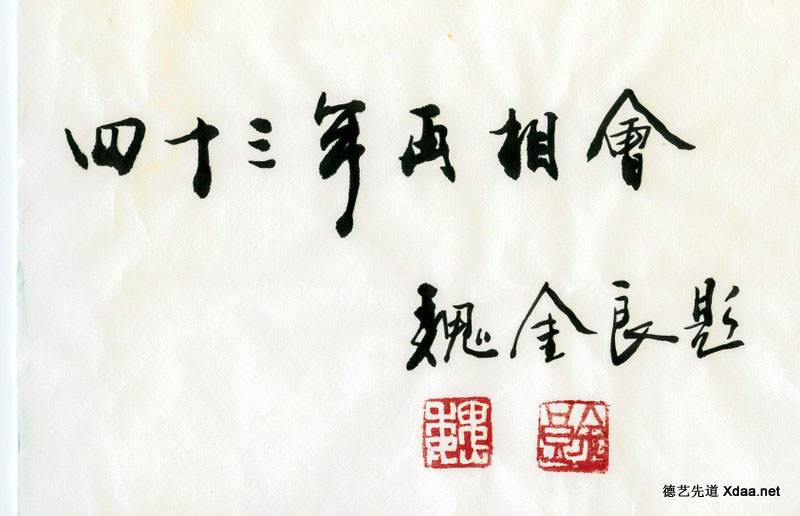 四十三年再相會
魏金良题
德艺先道 Xdaa.net